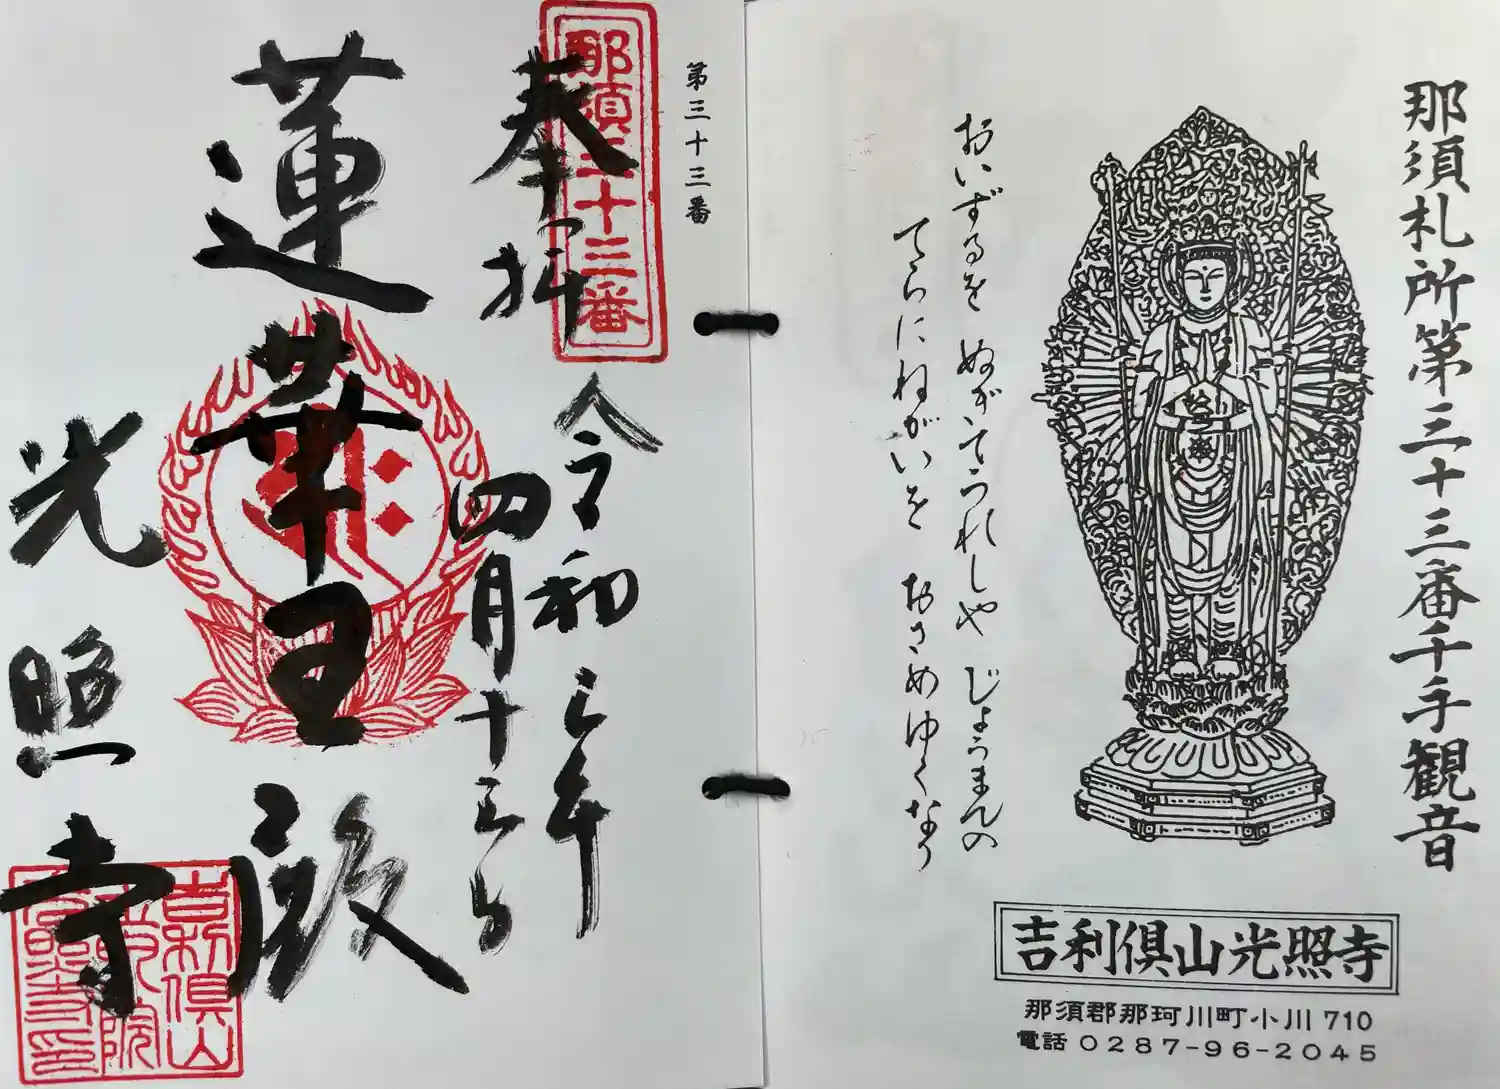 那須札所第三十三番千手観音
おいずるを ぬがいてうれしや じょうまんの
てらにねがいを おさめゆくなり
吉利倶山光照寺
那須郡那珂川町小川710
電話0287-96-2045
第三十三番
那須三十三番
奉拝
令和三年
四月十三日
蓮華王殿
光照寺
吉利倶山